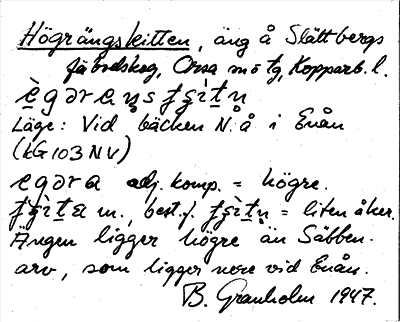 Högrängskitten, äng å Slättbergs
fäbodskog, Orsa sn o tg, Kopparb. l.
Läge: Vid bäcken N. å i Enån
(kG 103 NV)
adj. komp. = högre.
m., best. f. = liten åker.
Ängen ligger högre än Säbben-
arv, som ligger nere vid Enån.
B. Granholm 1947.